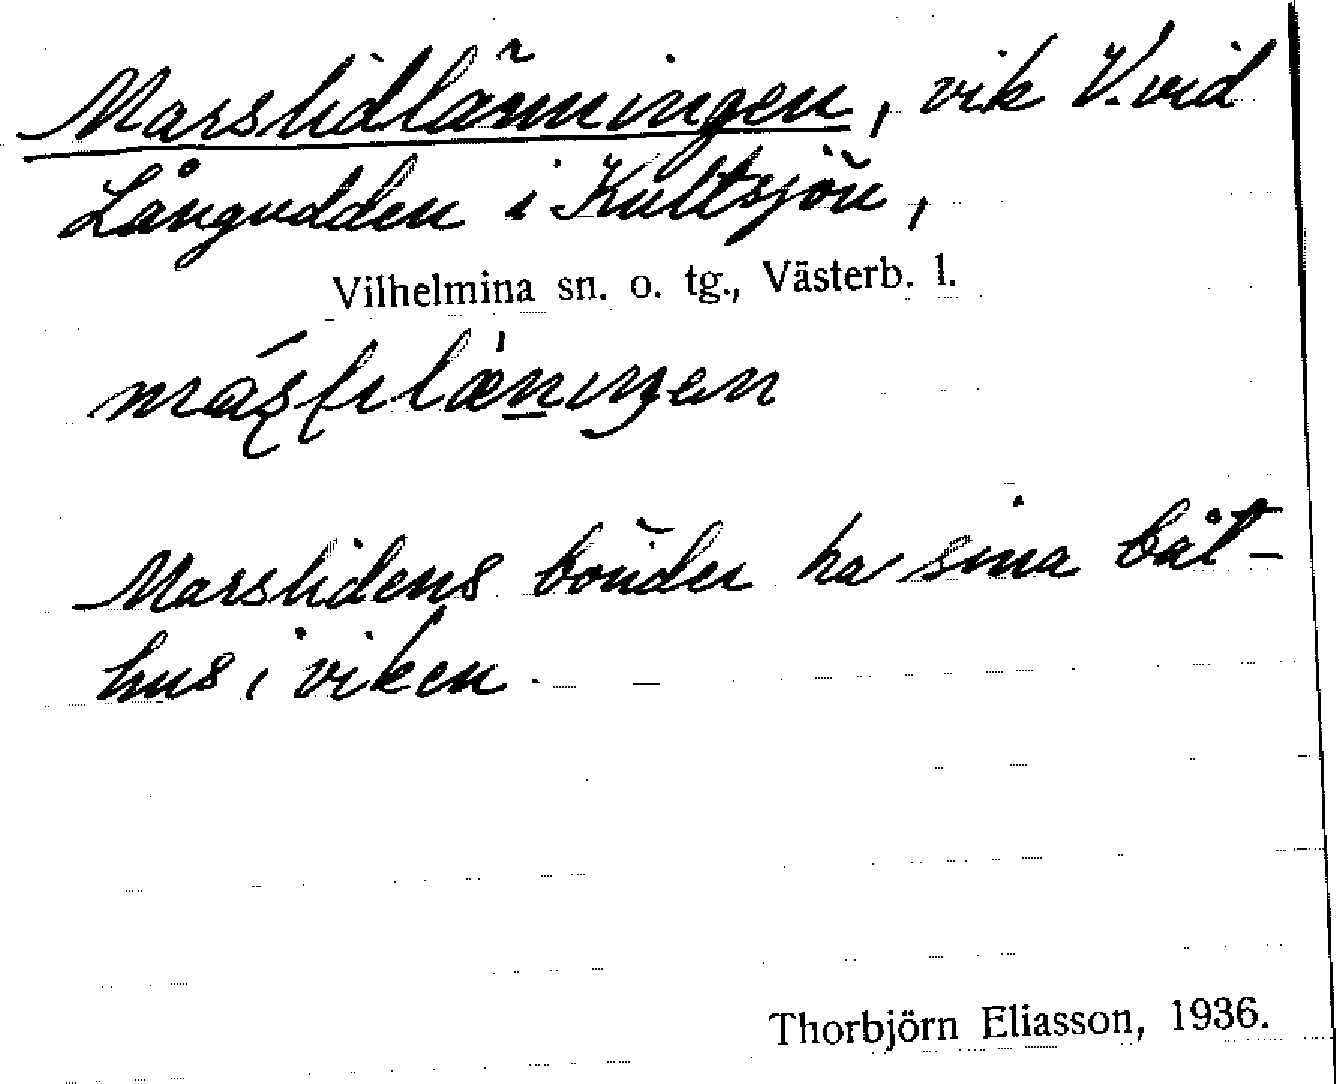 Marslidlänningen, vik V. vid
Långudden i Kultsjön,
Vilhelmina sn. o. tg., Västerb. l.
Marslidens bönder ha sina båt-
hus i viken.
Thorbjörn Eliasson, 1936.